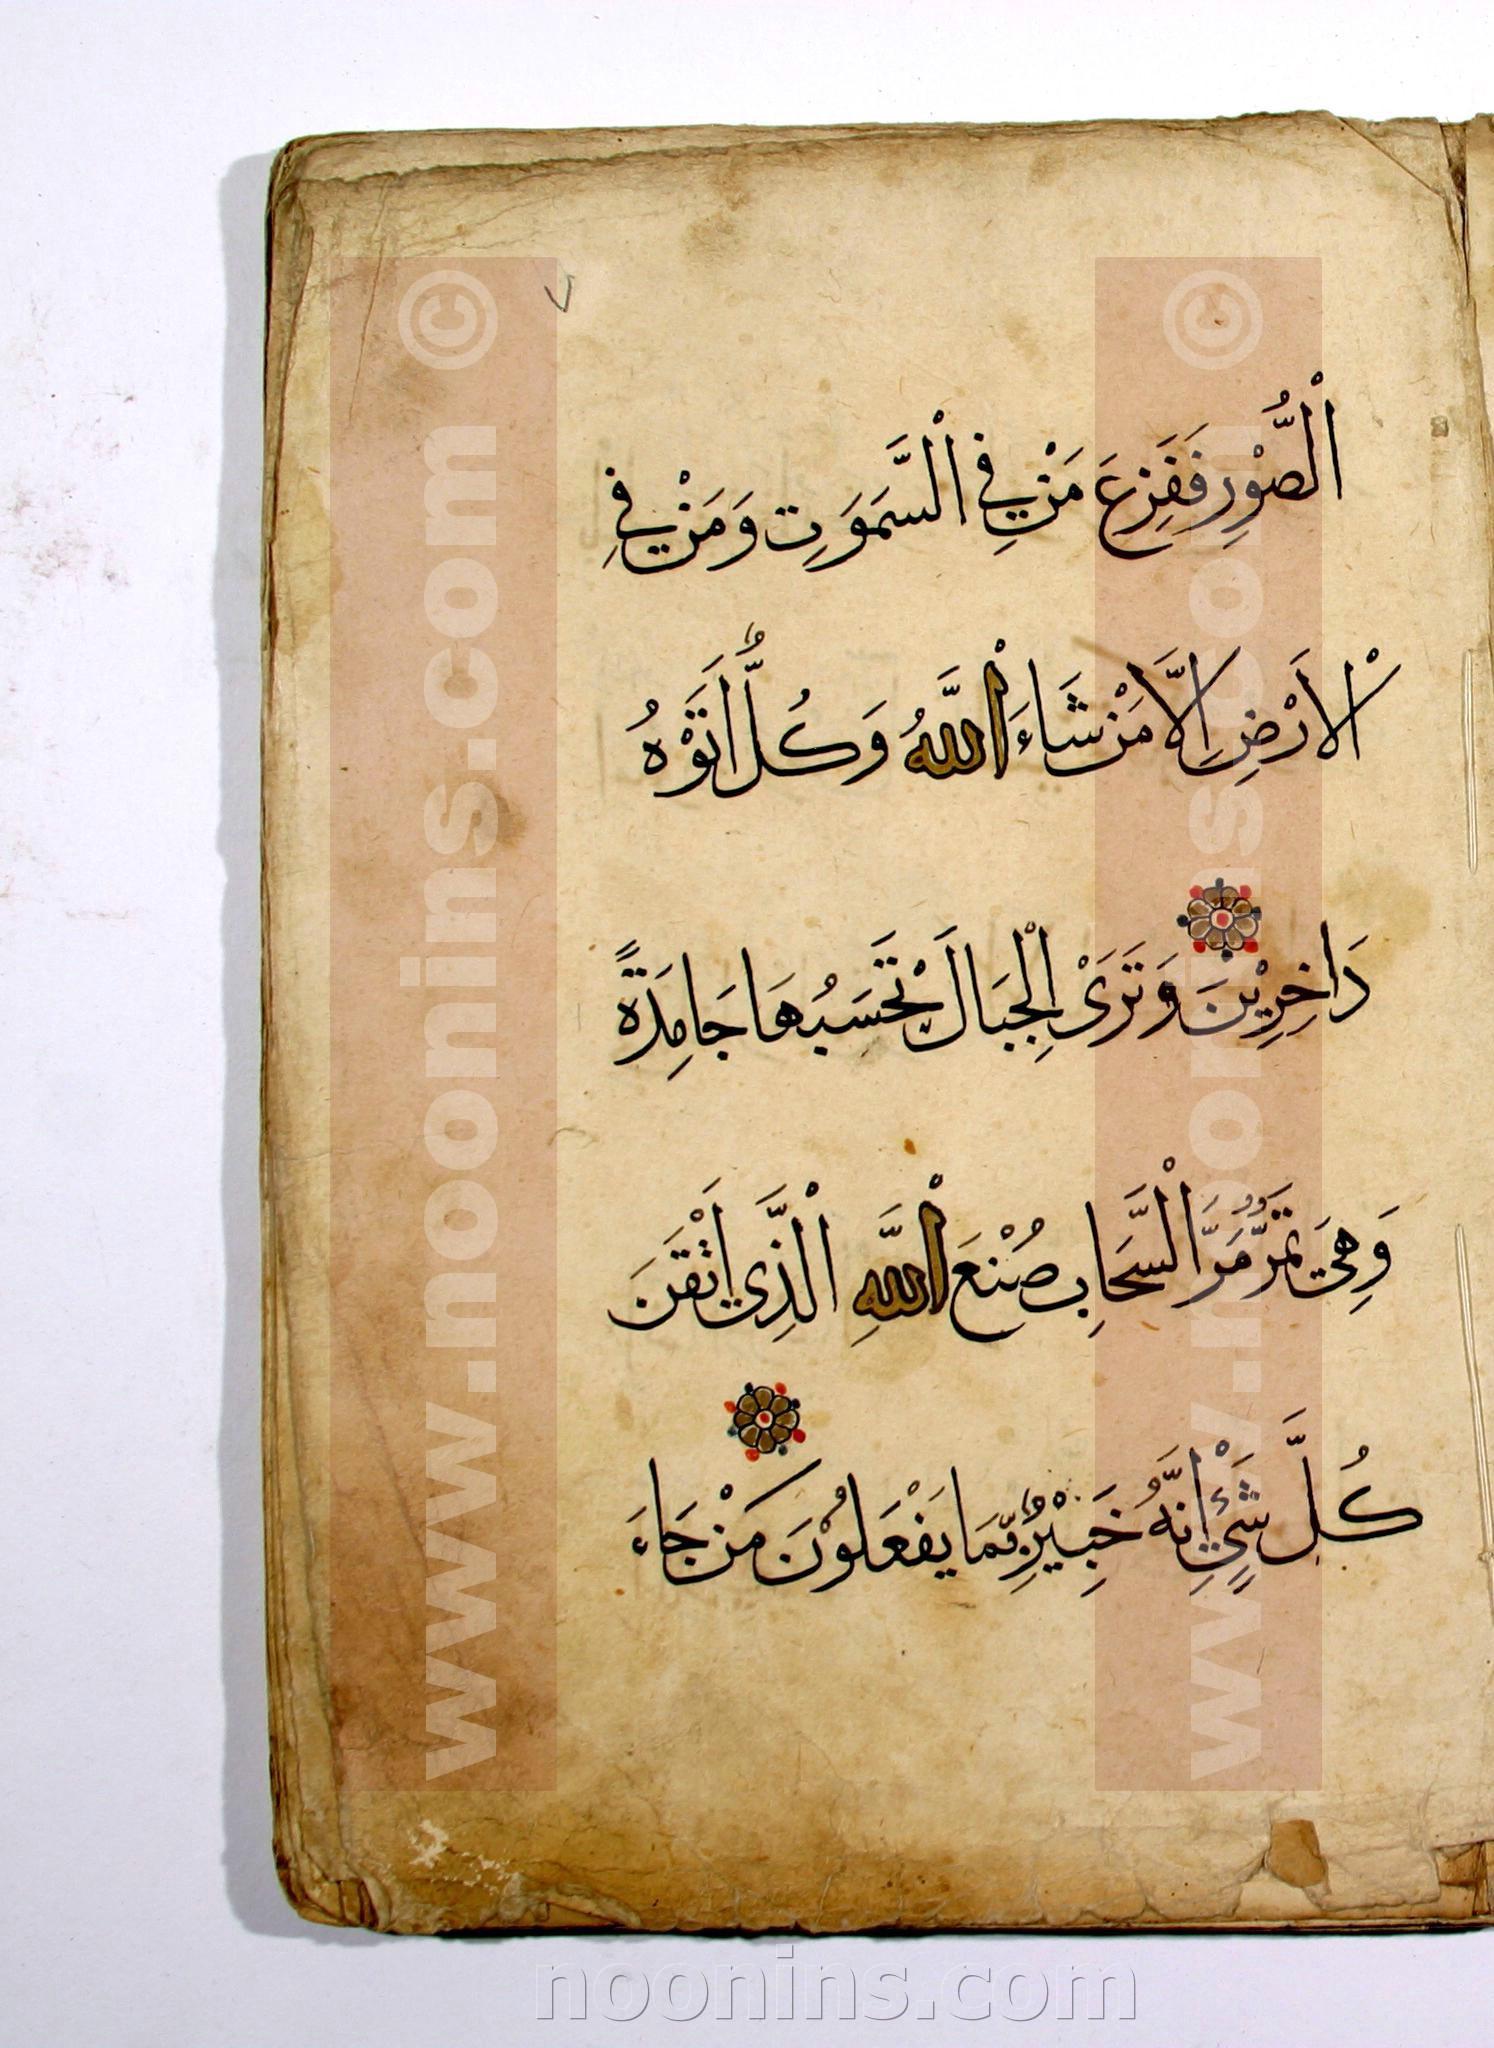 ٱلصُّوْرِ فَفَزِعَ مَنْ فِي ٱلسَّمَوَتِ وَمَنْ فِي
ٱلْاَرْضِ اِلَّا مَنْ شَاءَ ٱللَّهُ وَكُلٌّ اَتَوْهُ
دَاخِرِيْنَ وَتَرَىْ الْجِبَالَ تَحْسَبُهَا جَامِدَةً
وَهِيَ تَمُرُّ مَرَّ ٱلسَّحَابِ صُنْعَ ٱللَّهِ ٱلَّذِيْ اَتْقَنَ
كُلَّ شَيْءٍ اِنَّهُ خَبِيْرٌ بِمَا يَفْعَلُوْنَ مَنْ جَاءَ
٧
www.noonins.com ©
www.noonins.com ©
noonins.com